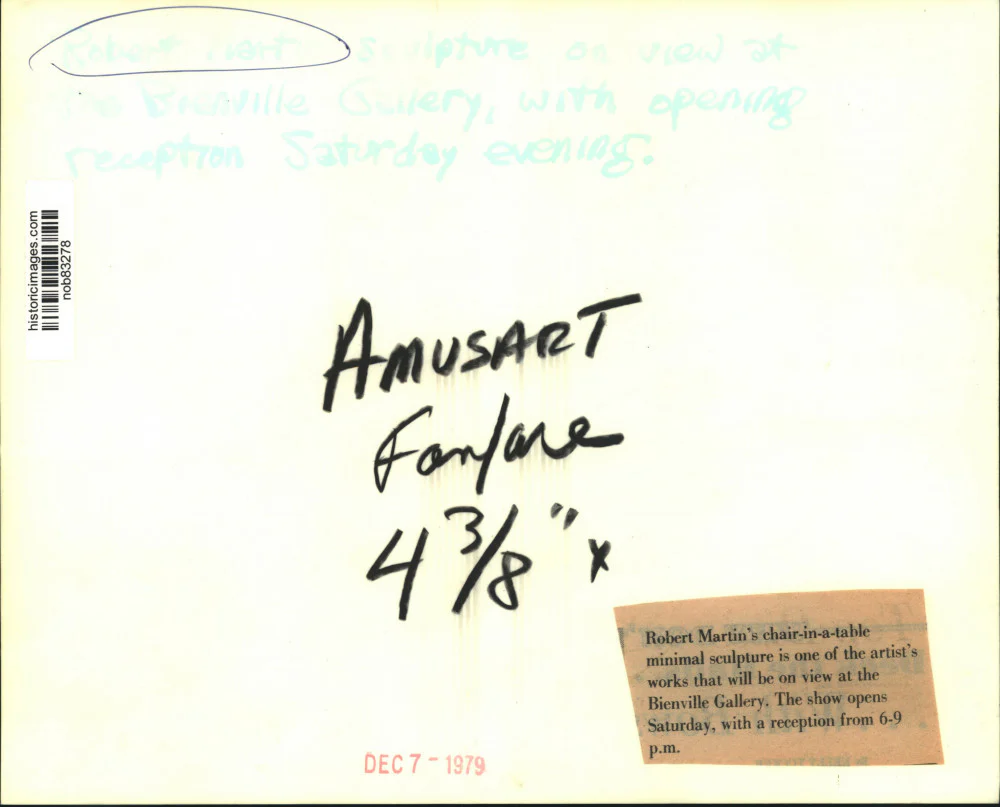 Robert Martin Sculpture on view at
the Bienville Gallery, with opening
reception Saturday evening.
historicimages.com
nob83278
AMUSART
Fanfare
4 3/8" x
Robert Martin's chair-in-a-table
minimal sculpture is one of the artist's
works that will be on view at the
Bienville Gallery. The show opens
Saturday, with a reception from 6-9
p.m.
DEC 7 - 1979